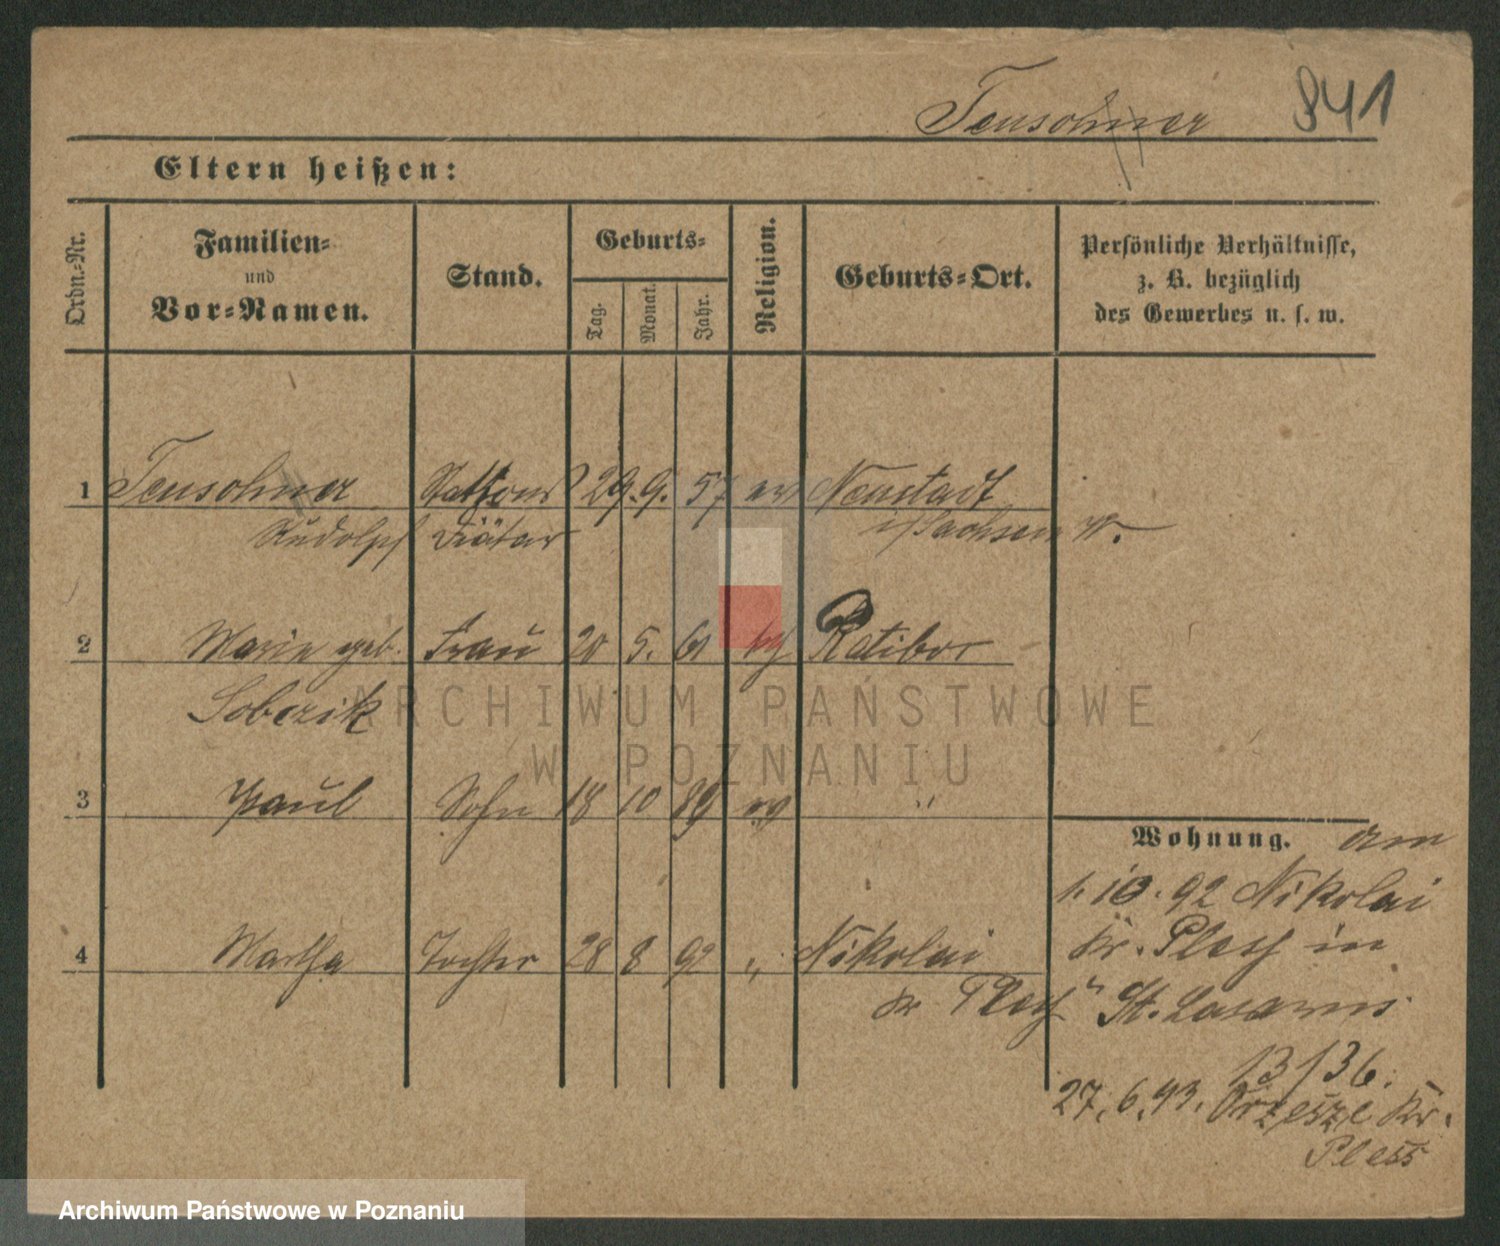 Teusohner 841
Eltern heißen:
Ordn.-Nr.
Familien-
und
Vor-Namen.
Stand.
Geburts-
Tag.
Monat.
Jahr.
Religion.
Geburts-Ort.
Persönliche Verhältnisse,
z. B. bezüglich
des Gewerbes u. s. w.
1 Teusohner Stations 29. 9. 57 ev Neustadt
Rudolph Diätar i/Sachsen W.
2 Marie geb. Frau 20 5. 61 kth Ratibor
Sobczik
3 Paul Sohn 18 10 89 ev "
4 Martha Tochter 28 8 92 " Nikolai
Kr Pless
Wohnung. am
1. 10. 92 Nikolai
Kr. Pless in
St. Lasarus
13/36.
27. 6. 93. Orzesze Kr.
Pless
ARCHIWUM PAŃSTWOWE
W POZNANIU
Archiwum Państwowe w Poznaniu